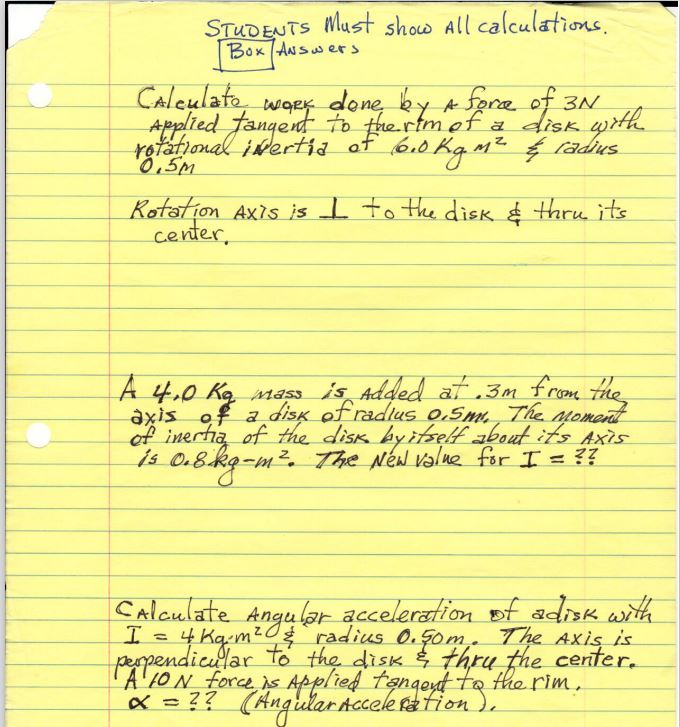 STUDENTS Must show All calculations.
Box Answers
Calculate work done by A force of 3N
Applied tangent to the rim of a disk with
rotational inertia of 6.0 Kg m² & radius
0.5m
Rotation Axis is ⊥ to the disk & thru its
center.
A 4.0 Kg mass is Added at .3m from the
axis of a disk of radius 0.5m. The Moment
of inertia of the disk by itself about its Axis
is 0.8 kg-m². The New Value for I = ??
Calculate Angular acceleration of a disk with
I = 4 Kg·m² & radius 0.50m. The Axis is
perpendicular to the disk & thru the center.
A 10 N force is Applied tangent to the rim.
α = ?? (Angular Acceleration).